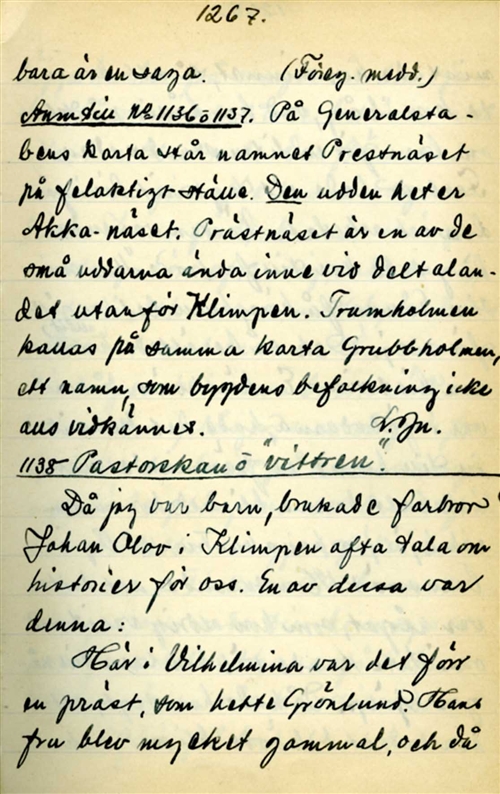 1267.
bara är en saga. (Föreg. medd.)
Anm till No 1136 o 1137. På Generalsta-
bens karta står namnet Prestnäset
på felaktigt ställe. Den udden heter
Akka-näset. Prästnäset är en av de
små uddarna ända inne vid deltalan-
det utanför Klimpen. Trumholmen
kallas på samma karta Grubbholmen,
ett namn, som bygdens befolkning icke
alls vidkännes.
1138 Pastorskan o "vittren".
Då jag var barn, brukade farbror
Johan Olov i Klimpen ofta tala om
historier för oss. En av dessa var
denna:
Här i Vilhelmina var det förr
en präst, som hette Grönlund. Hans
fru blev mycket gammal, och då